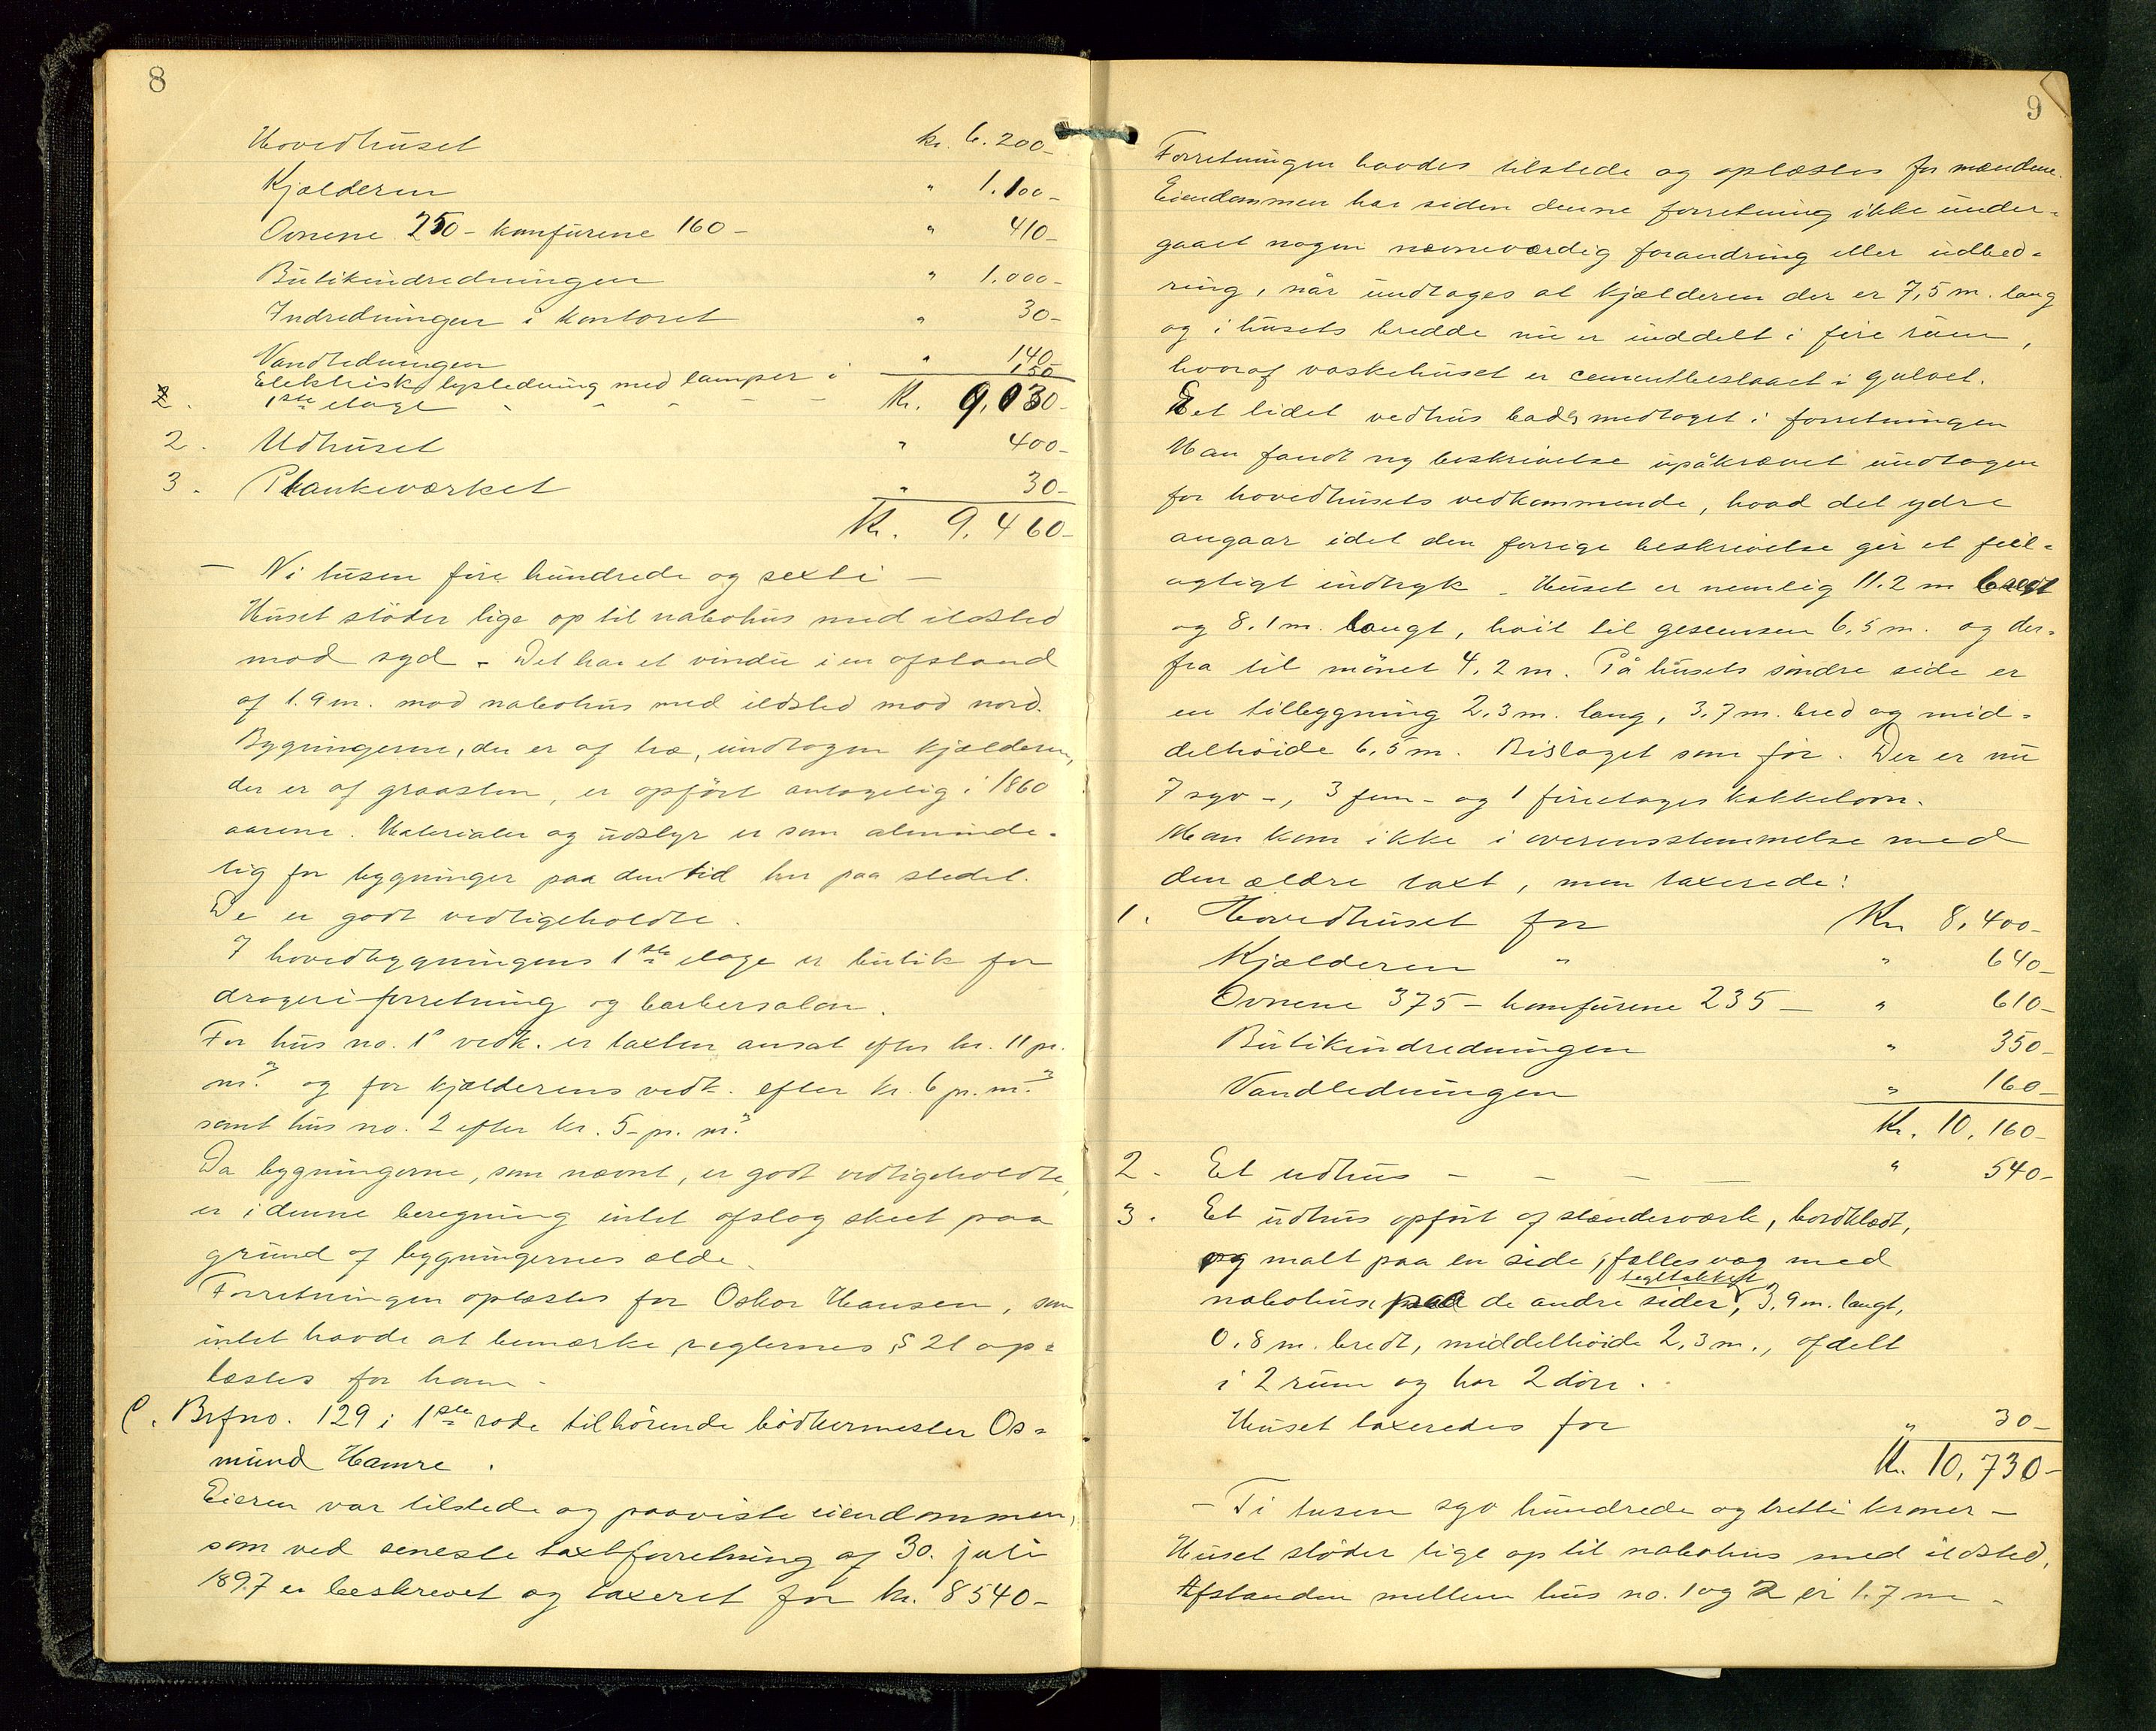 8
Hovedhuset kr. 6.200-
Kjælderen " 1.100-
Ovnene 250- komfurene 160- " 410-
Butikindredningen " 1.000-
Indredningen i kontoret " 30-
Vandledningen " 140-
Elektrisk lysledning med lamper i 150
1ste etage - - - - - Kr. 9.030-
2. Udhuset " 400-
3. Plankeværket " 30-
Kr. 9.460-
- Ni tusen fire hundrede og sexti -
Huset støder lige op til nabohus med ildsted
mod syd - Det har et vindu i en afstand
af 1.9 m. mod nabohus med ildsted mod nord.
Bygningerne, der er af træ, undtagen kjælderen,
der er af graasten, er opført antagelig i 1860
aarene. Materialer og udstyr er som alminde-
lig for bygninger paa den tid her paa stedet.
De er godt vedligeholdte.
I hovedbygningens 1ste etage er butik for
drogeriforretning og barbersalon.
For hus no. 1s vedk. er taxten ansat efter kr. 11 pr.
m.3 og for kjælderens vedk. efter kr. 6 pr. m.3
samt hus no. 2 efter kr. 5- pr. m.3
Da bygningerne, som nævnt, er godt vedligeholdte,
er i denne beregning intet afslag skeet paa
grund af bygningernes ælde.
Forretningen oplæstes for Oskar Hansen, som
intet havde at bemærke, reglernes § 21 op-
læstes for ham -
C. Brfno. 129 i 1ste rode tilhørende bødkermester Os-
mund Hamre.
Eieren var tilstede og paaviste eiendommen,
som ved seneste taxtforretning af 30. juli
1897 er beskrevet og taxeret for kr. 8540-
9
Forretningen havdes tilstede og oplæstes for mændene.
Eiendommen har siden denne forretning ikke under-
gaaet nogen nævneværdig forandring eller udbed-
ring, når undtages at kjælderen der er 7,5 m. lang
og i husets bredde nu er inddelt i fire rum,
hvoraf vaskehuset er cementbeslaaet i gulvet.
Et lidet vedhus bades medtaget i forretningen
Man fandt ny beskrivelse upåkrævet undtagen
for hovedhusets vedkommende, hvad det ydre
angaar idet den forrige beskrivelse gir et feil-
agtigt indtryk - Huset er nemlig 11.2 m bredt
og 8.1 m. langt, høit til gesemsen 6,5 m. og der-
fra til mønet 4.2 m. På husets søndre side er
en tilbygning 2.3 m. lang, 3.7 m. bred og mid-
delhøide 6.5 m. Bislaget som før. Der er nu
7 syv-, 3 fem- og 1 fireetages kakkelovn.
Man kom ikke i overensstemmelse med
den ældre taxt, men taxerede:
1. Hovedhuset for Kr 8,400-
Kjælderen " " 640-
Ovnene 375- komfurene 235- " 610-
Butikindredningen " 350-
Vandledningen " 160-
Kr. 10,160-
2. Et udhus - - - - " 540-
3. Et udhus opført af stænderværk, bordklædt,
og malt paa en side, fælles væg med
tegltækket
nabohus paa de andre sider, 3.9 m. langt,
0.8 m. bredt, middelhøide 2.3 m., afdelt
i 2 rum og har 2 døre.
Huset taxeredes for " 30-
Kr. 10,730-
- Ti tusen syv hundrede og tretti kroner -
Huset støder lige op til nabohus med ildsted,
Afstanden mellem hus no. 1 og 2 er 1.7 m -